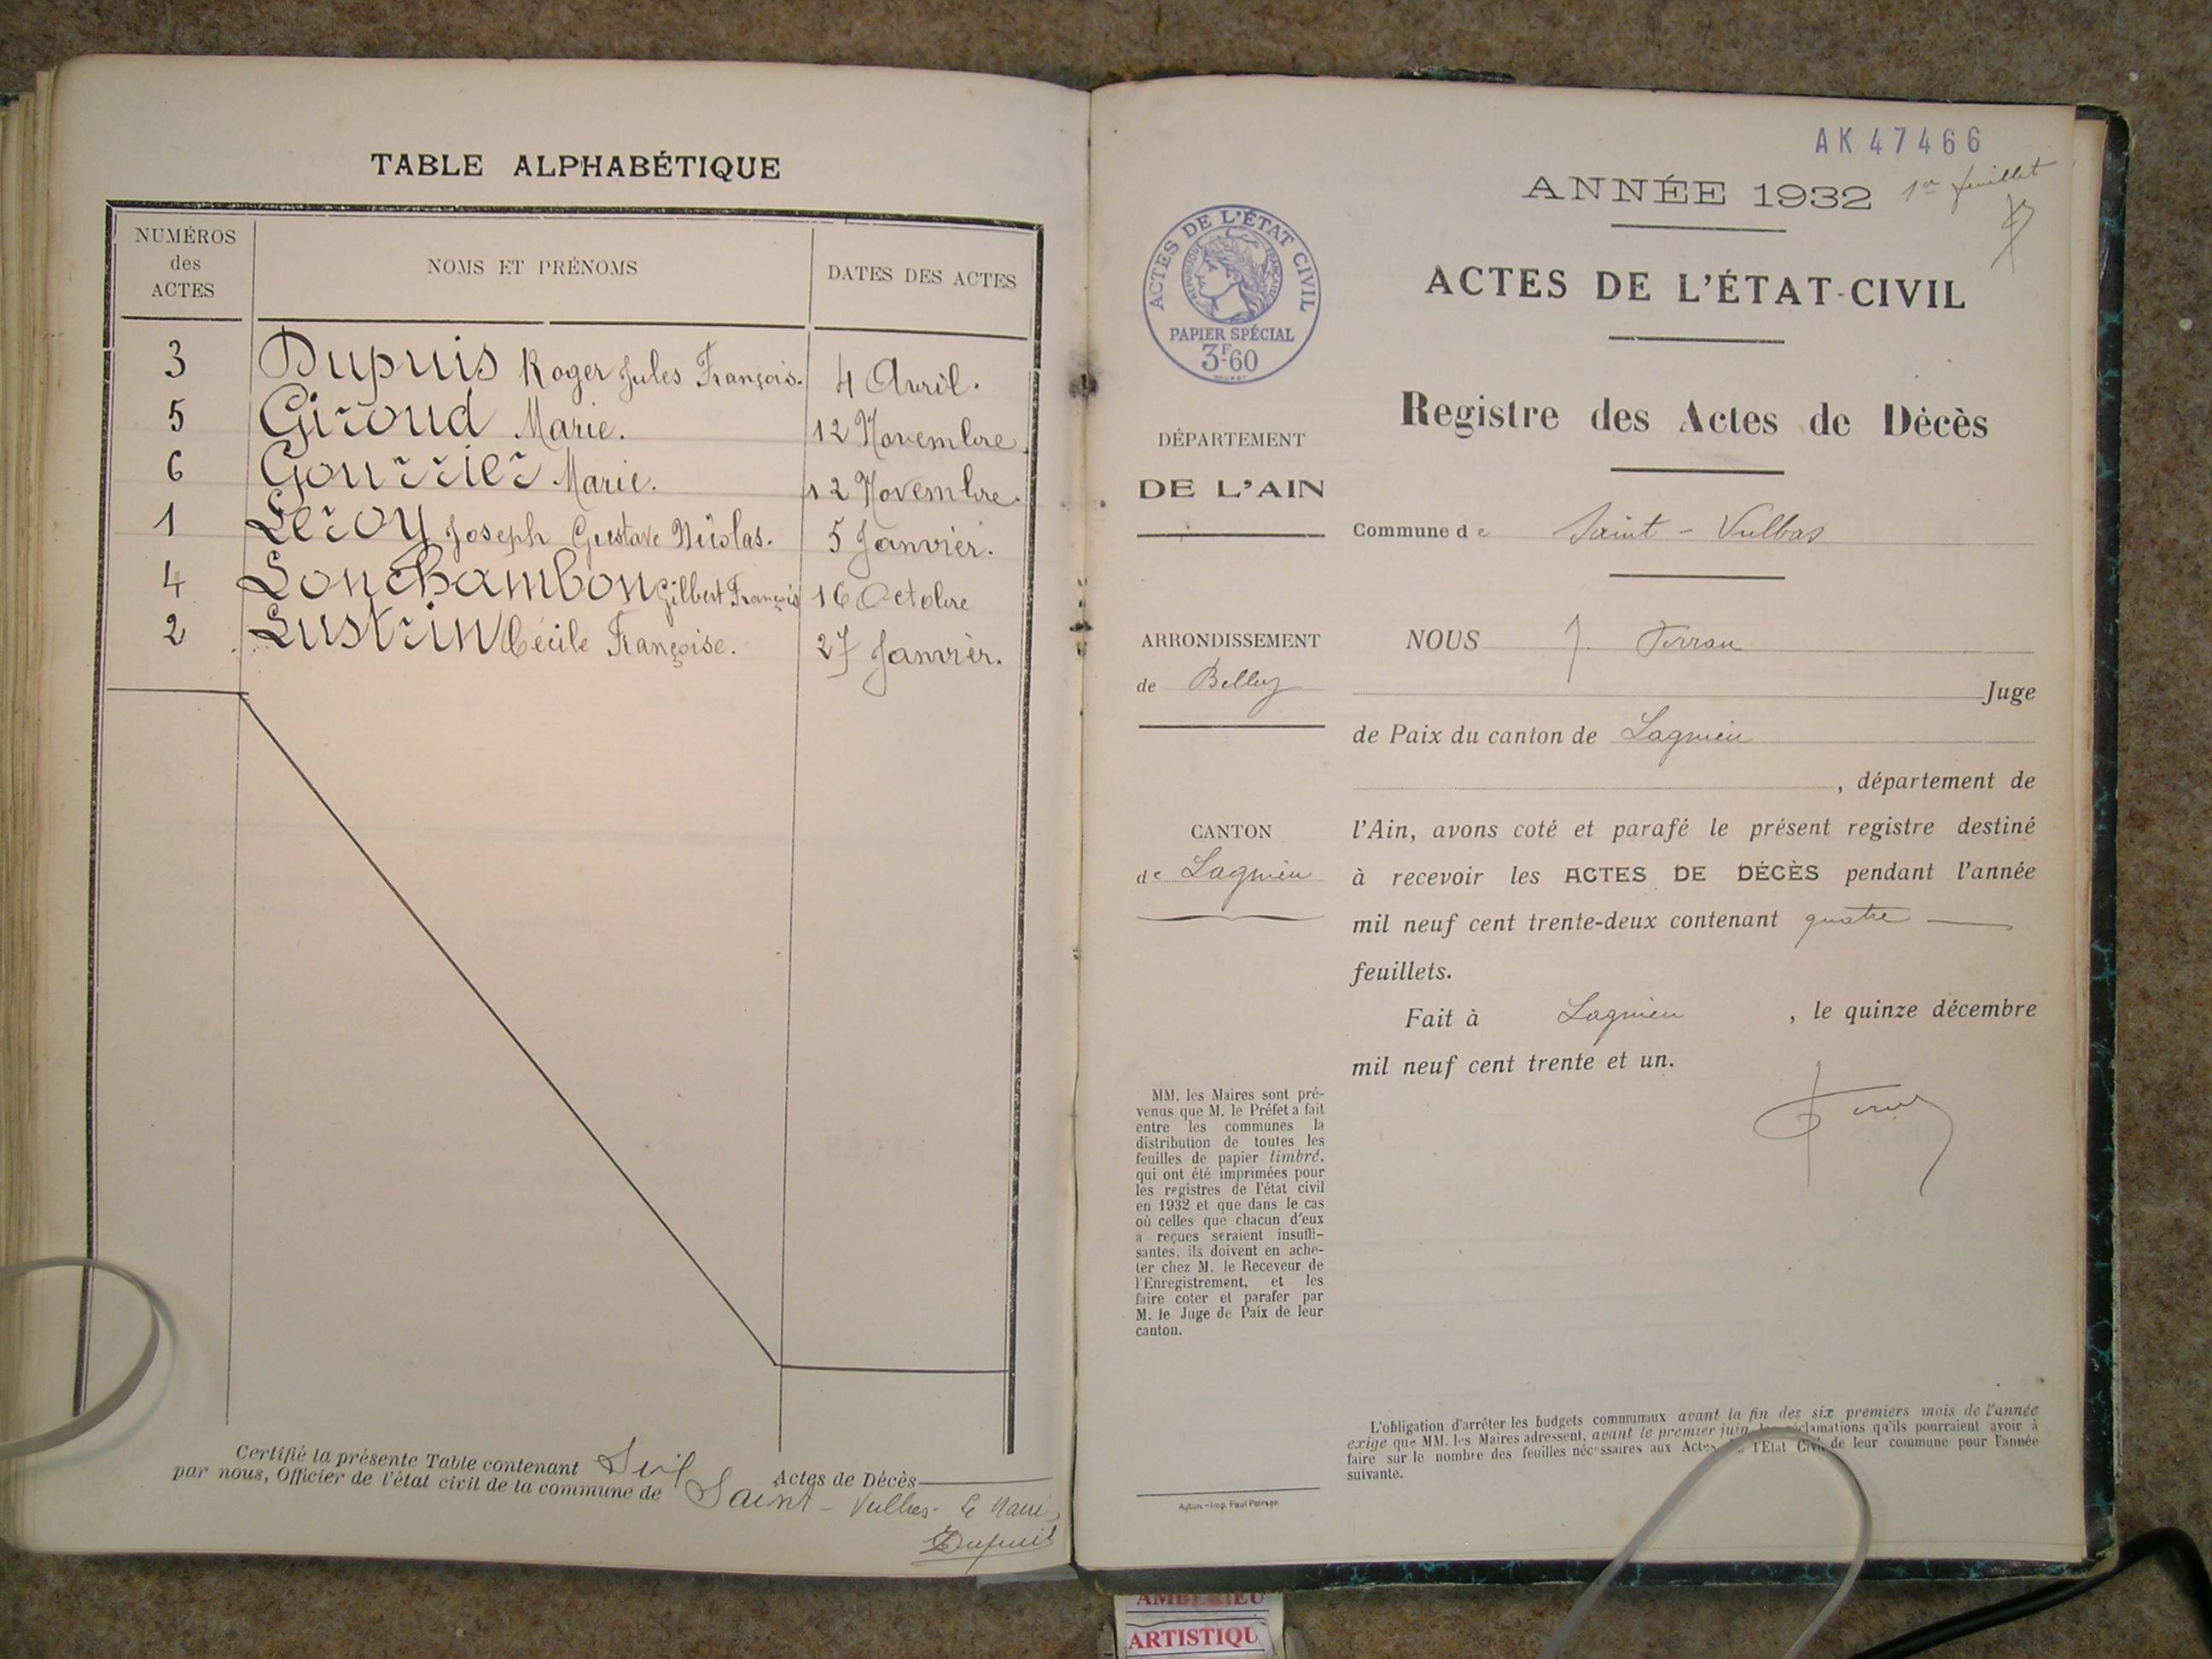 TABLE ALPHABÉTIQUE
NUMÉROS
des
ACTES
NOMS ET PRÉNOMS
DATES DES ACTES
3 Dupuis Roger Jules François. 4 Avril.
5 Giroud Marie. 12 Novembre.
6 Gourrier Marie. 12 Novembre.
1 Leroy Joseph Gustave Nicolas. 5 Janvier.
4 Lonchambon Gilbert François 16 Octobre
2 Lustrin Cécile Françoise. 27 Janvier.
Certifié la présente Table contenant Actes de Décès
par nous, Officier de l'état civil de la commune de Saint-Vulbas. Le Maire,
Dupuis
AK 47466
ANNÉE 1932 1er feuillet
ACTES DE L'ÉTAT CIVIL
RÉPUBLIQUE FRANÇAISE
PAPIER SPÉCIAL
3F.60
ACTES DE L'ÉTAT-CIVIL
Registre des Actes de Décès
DÉPARTEMENT
DE L'AIN
Commune de Saint-Vulbas
ARRONDISSEMENT
de Belley
CANTON
de Lagnieu
NOUS J. Ferran
Juge
de Paix du canton de Lagnieu
, département de
l'Ain, avons coté et parafé le présent registre destiné
à recevoir les ACTES DE DÉCÈS pendant l'année
mil neuf cent trente-deux contenant quatre
feuillets.
Fait à Lagnieu , le quinze décembre
mil neuf cent trente et un.
MM. les Maires sont pré-
venus que M. le Préfet a fait
entre les communes la
distribution de toutes les
feuilles de papier timbré,
qui ont été imprimées pour
les registres de l'état civil
en 1932 et que dans le cas
où celles que chacun d'eux
a reçues seraient insuffi-
santes, ils doivent en ache-
ter chez M. le Receveur de
l'Enregistrement, et les
faire coter et parafer par
M. le Juge de Paix de leur
canton.
L'obligation d'arrêter les budgets communaux avant la fin des six premiers mois de l'année
exige que MM. les Maires adressent, avant le premier juin, les réclamations qu'ils pourraient avoir à
faire sur le nombre des feuilles nécessaires aux Actes de l'Etat Civil de leur commune pour l'année
suivante.
Autun. - Imp. Paul Poirson
AMBERIEU
ARTISTIQU